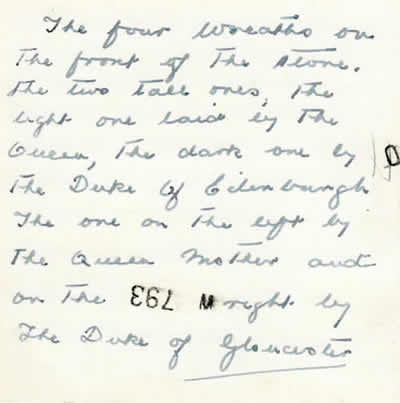 The four wreaths on
the front of the stone.
the two tall ones, the
light one laid by the
Queen, the dark one by
the Duke of Edinburgh
The one on the left by
the Queen Mother and
on the right by
The Duke of Gloucester